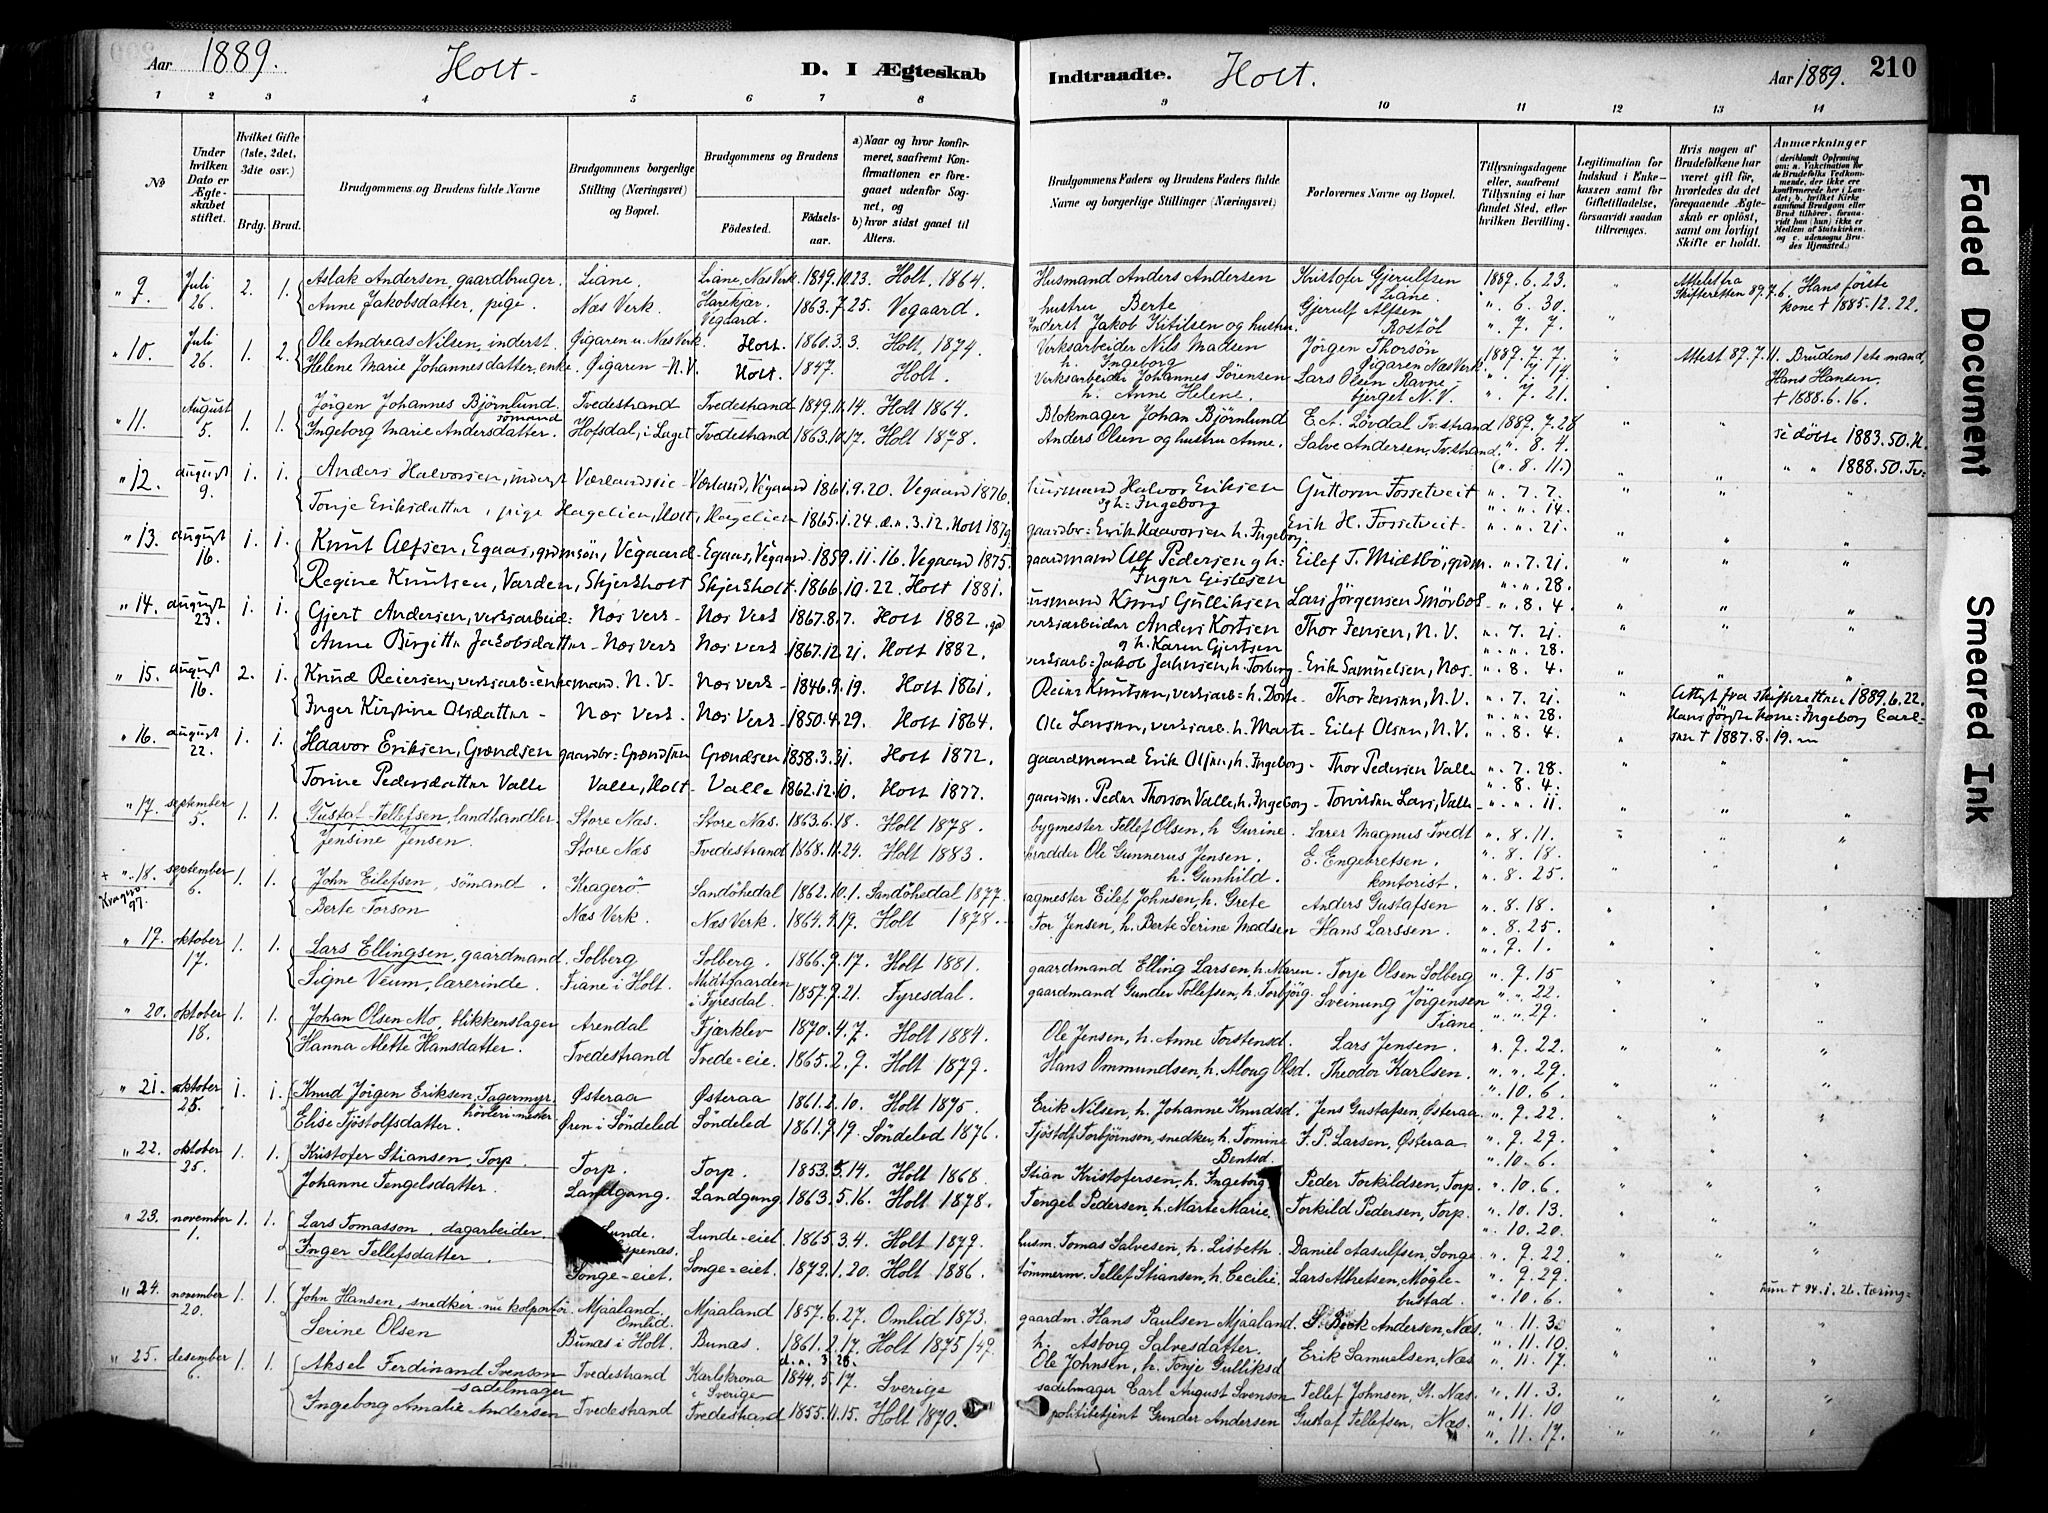 Aar 1889. Holt. D. I Ægteskab Indtraadte. Holt. Aar 1889. 210
1 2 3 4 5 6 7 8 9 10 11 12 13 14
No
Under hvilken Dato er Ægteskabet stiftet.
Hvilket Gifte (1ste, 2det, 3die osv.)
Brdg. Brud.
Brudgommens og Brudens fulde Navne
Brudgommens borgerlige Stilling (Næringsvei) og Bopæl.
Brudgommens og Brudens
Födested. Födselsaar.
a) Naar og hvor konfirmeret, saafremt Konfirmationen er foregaaet udenfor Sognet, og
b) hvor sidst gaaet til Alters.
Brudgommens Faders og Brudens Faders fulde Navne og borgerlige Stillinger (Næringsvei)
Forlovernes Navne og Bopæl.
Tillysningsdagene eller, saafremt Tillysning ei har fundet Sted, efter hvilken Bevilling.
Legitimation for Indskud i Enkekassen samt for Giftetilladelse, forsaavidt saadan tiltrænges.
Hvis nogen af Brudefolkene har været gift før, hvorledes da det foregaaende Ægteskab er oplöst, samt om lovligt Skifte er holdt.
Anmærkninger
" 9. Juli 26. 2. 1. Aslak Andersen, gaardbruger. Liane. Liane, Næs Verk. 1849.10.23. Holt. 1864. Husmand Anders Andersen Kristofer Gjerulfsen Liane. 1889. 6. 23. Hans förste
Anne Jakobsdatter, pige. Næs Verk. Vegaard. 1863.7.25. Vegaard. hustru Berte Gjerulf Alfsen Rostöl ". 6. 30. kone † 1885.12.22.
Inderst Jakob Kitilsen og hustru ". 7. 7.
" 10. Juli 26. 1. 2. Ole Andreas Nilsen, inderst. Øigaren u. Næs Verk. Holt. 1860.3.3. Holt, 1874. Verksarbeider Nils Madsen Jörgen Thorsön Øigaren Næs Verk. 1889. 7. 7. Attest 89.7.11. Brudens 1ste mand,
Helene Marie Johannesdatter, enke. Øigaren N.V. Holt. 1847. Holt. h. Ingeborg ". 7. 14. Hans Hansen.
Verksarbeider Johannes Sörensen h. Anne Helene. Lars Olsen Ravnebjerget N.V. ". 7. 21. † 1888.6.16.
" 11. August 5. 1. 1. Jörgen Johannes Bjørnlund. sömand Tvedestrand Tvedestrand 1849.11.14. Holt 1864. Blokmager Johan Bjørnlund E. A. Lövdal Tv.strand 1889. 7. 28
Ingeborg Marie Andersdatter. Hofsdal, i Laget Tvedestrand 1863.10.17. Holt 1878. Anders Olsen og hustru Anne. Salve Andersen, Tv.strand. ". 8. 4. se døbte 1883.50.H.
(". 8. 11.) " " 1888.50.Tv.
" 12. august 9. 1. 1. Anders Halvorsen, inderst Værlandsvie Værland, Vegaard 1861.9.20. Vegaard 1876. husmand Halvor Eriksen og h: Ingeborg Guttorm Fossetveit ". 7. 7.
". ". 14.
Tonje Eriksdatter, pige Hagelien, Holt, Hagelien 1865.1.24. d.n. 3.12. Holt 1879. gaardbr: Erik Haavorsen h. Ingeborg. Erik H. Fossetveit ". ". 21.
" 13. august 16. 1. 1. Knut Alfsen, Egaas, grdmsön, Vegaard Egaas, Vegaard 1859.11.16. Vegaard 1875. gaardmand Alf Pedersen og h: Eilef T. Midtbö, grdm. ". 7. 21.
Regine Knutsen, Varden, Skjersholt Skjersholt. 1866.10.22. Holt 1881. ". ". 28.
husmand Knud Gulliksen Lars Jörgensen Smörbok ". 8. 4.
" 14. august 23. 1. 1. Gjert Andersen, verksarbeid: Næs Verk Næs Verk 1867.8.7. Holt 1882. verksarbeider Anders Kortsen og h. Karen Gjertsen Thor Jensen, N.V. ". 7. 21.
". ". 28.
Anne Birgitte Jakobsdatter Næs verk Næs verk 1867.12.21. Holt 1882. verksarb: Jakob Jahnsen, h. Torberg Erik Samuelsen, Næs ". 8. 4.
" 15. august 16. 2. 1. Knud Reiersen, verksarb: enkemand. N.V. Næs verk 1846.9.19. Holt 1861. Reier Knutsen, verksarb: h. Dorte Thor Jensen, N.V. ". 7. 21. Attest fra skifteretten 1889.6.22.
". ". 28. Hans förste kone: Ingeborg Carlsen † 1887.8.19.
Inger Kirstine Olsdatter Næs Verk Næs Verk 1850.4.29. Holt 1864. Ole Larsen, verksarb. h. Marte Eilef Olsen, N.V. ". 8. 4.
" 16. august 22. 1. 1. Haavor Eriksen, Grændsen gaardbr: Grændsen Grændsen 1858.3.31. Holt 1872. gaardmand Erik Olsen, h. Ingeborg Thor Pedersen Valle ". 7. 28.
". 8. 4.
Torine Pedersdatter Valle Valle, Holt Valle 1862.12.10. Holt 1877. gaardm. Peder Thorson Valle, h. Ingeborg Lars, Valle ". ". 11.
" 17. september 5. 1. 1. Gustaf Tellefsen, landhandler Store Næs. Store Næs. 1863.6.18. Holt 1878. bygmester Tellef Olsen, h Gurine. Lærer Magnus Tvedt ". 8. 11.
Jensine Jensen. Store Næs Tvedestrand 1868.11.24. Holt 1883. skrædder Ole Gunnerus Jensen. h. Gunhild. E. Engebretsen. kontorist. ". 8. 18.
". 8. 25.
+ " 18. Kragerø 97. september 6. 1. 1. John Eilefsen, sömand. Kragerö Sandöhedal 1862.10.1. Sandöhedal 1877. sagmester Eilef Johnsen, h. Grete Anders Gustafsen ". 8. 18.
Berte Torson Næs Verk. Næs Verk 1864.4.19. Holt 1878. Tor Jensen, h. Berte Serine Madsen Hans Larssen. ". 8. 25.
". 9. 1.
" 19. oktober 17. 1. 1. Lars Ellingsen, gaardmand. Solberg Solberg. 1866.9.17. Holt 1881. gaardmand Elling Larsen, h. Maren. Torje Olsen Solberg ". 9. 15
Signe Veum, lærerinde. Fiane i Holt. Midtgaarden i Fyresdal. 1857.9.21. Fyresdal. gaardmand Gunder Tollefsen, h. Torbjörg. Sveinung Jörgensen Fiane. ". ". 22.
". ". 29.
" 20. oktober 18. 1. 1. Johan Olsen Mo, blikkenslager Arendal Fjærklev 1870.4.7. Holt 1884. Ole Jensen, h. Anne Torstensd. Lars Jensen. ". 9. 22.
Hanna Alette Hansdatter. Tvedestrand Tvede=eie. 1865.2.9. Holt 1879. Hans Ommundsen, h. Aloug Olsd. Theodor Karlsen. ". ". 29.
". 10. 6.
" 21. oktober 25. 1. 1. Knud Jörgen Eriksen, Fagermyr. Østeraa Østeraa 1861.2.10. Holt 1875. Erik Nilsen, h. Johanne Knudsd. Jens Gustafsen, Østeraa ". 9. 22.
Elise Tjöstolfsdatter. Øren i Söndeled Söndeled 1861.9.19. Söndeled 1876. Tjöstolf Torbjörnson, snedker, h. Tomine Bentsd. F. P. Larsen, Østeraa ". 9. 29.
". 10. 6.
" 22. oktober 25. 1. 1. Kristofer Stiansen, Torp. Torp. Torp. 1853.5.14. Holt 1868. Stian Kristofersen, h. Ingeborg Peder Torkildsen, Torp. ". 10. 6.
Johanne Tengelsdatter. Landgang. Landgang 1863.5.16. Holt 1878. Tengel Pedersen, h. Marte Marie. Torkild Pedersen, Torp. ". 10. 13.
". 10. 20.
" 23. november 1. 1. 1. Lars Tomasson, dagarbeider Lunde. Lunde=eiet 1865.3.4. Holt 1879. husm. Tomas Salvesen, h. Lisbeth. Daniel Aasulfsen, Songe ". 9. 22.
Inger Tellefsdatter Songe=eiet. Songe=eiet. 1872.1.20. Holt 1886. tömmerm. Tellef Stiansen, h. Cecilie. Lars Mögle= bustad. ". 9. 29.
". 10. 6. hun † 94.1.26. tæring=
" 24. november 20. 1. 1. John Hansen, snedker nu kolportör Mjaaland. Omlid. Mjaaland 1857.6.27. Omlid 1873. gaardm. Hans Paulsen Mjaaland. Andersen, Næs. ". 11. 3.
Serine Olsen Bunæs i Holt. Bunæs. 1861.2.17. Holt 1875/49. h. Asborg Salvesdatter. ". 11. 10.
Ole Johnsen, h. Tonje Gulliksd Erik Samuelsen, Næs ". 11. 17.
" 25. desember 6. 1. 1. Aksel Ferdinand Svenson sadelmager Tvedestrand Karlskrona i Sverige 1844.5.17. Sverige sadelmager Carl August Svenson Tellef Johnsen, St. Næs. ". 11. 3.
Ingeborg Amalie Andersen Tvedestrand Tvedestrand 1855.11.15. Holt 1870. polititstjent Gunder Andersen Gustaf Tellefsen, Næs. ". 11. 10
". 11. 17.
Faded Document
Smeared Ink